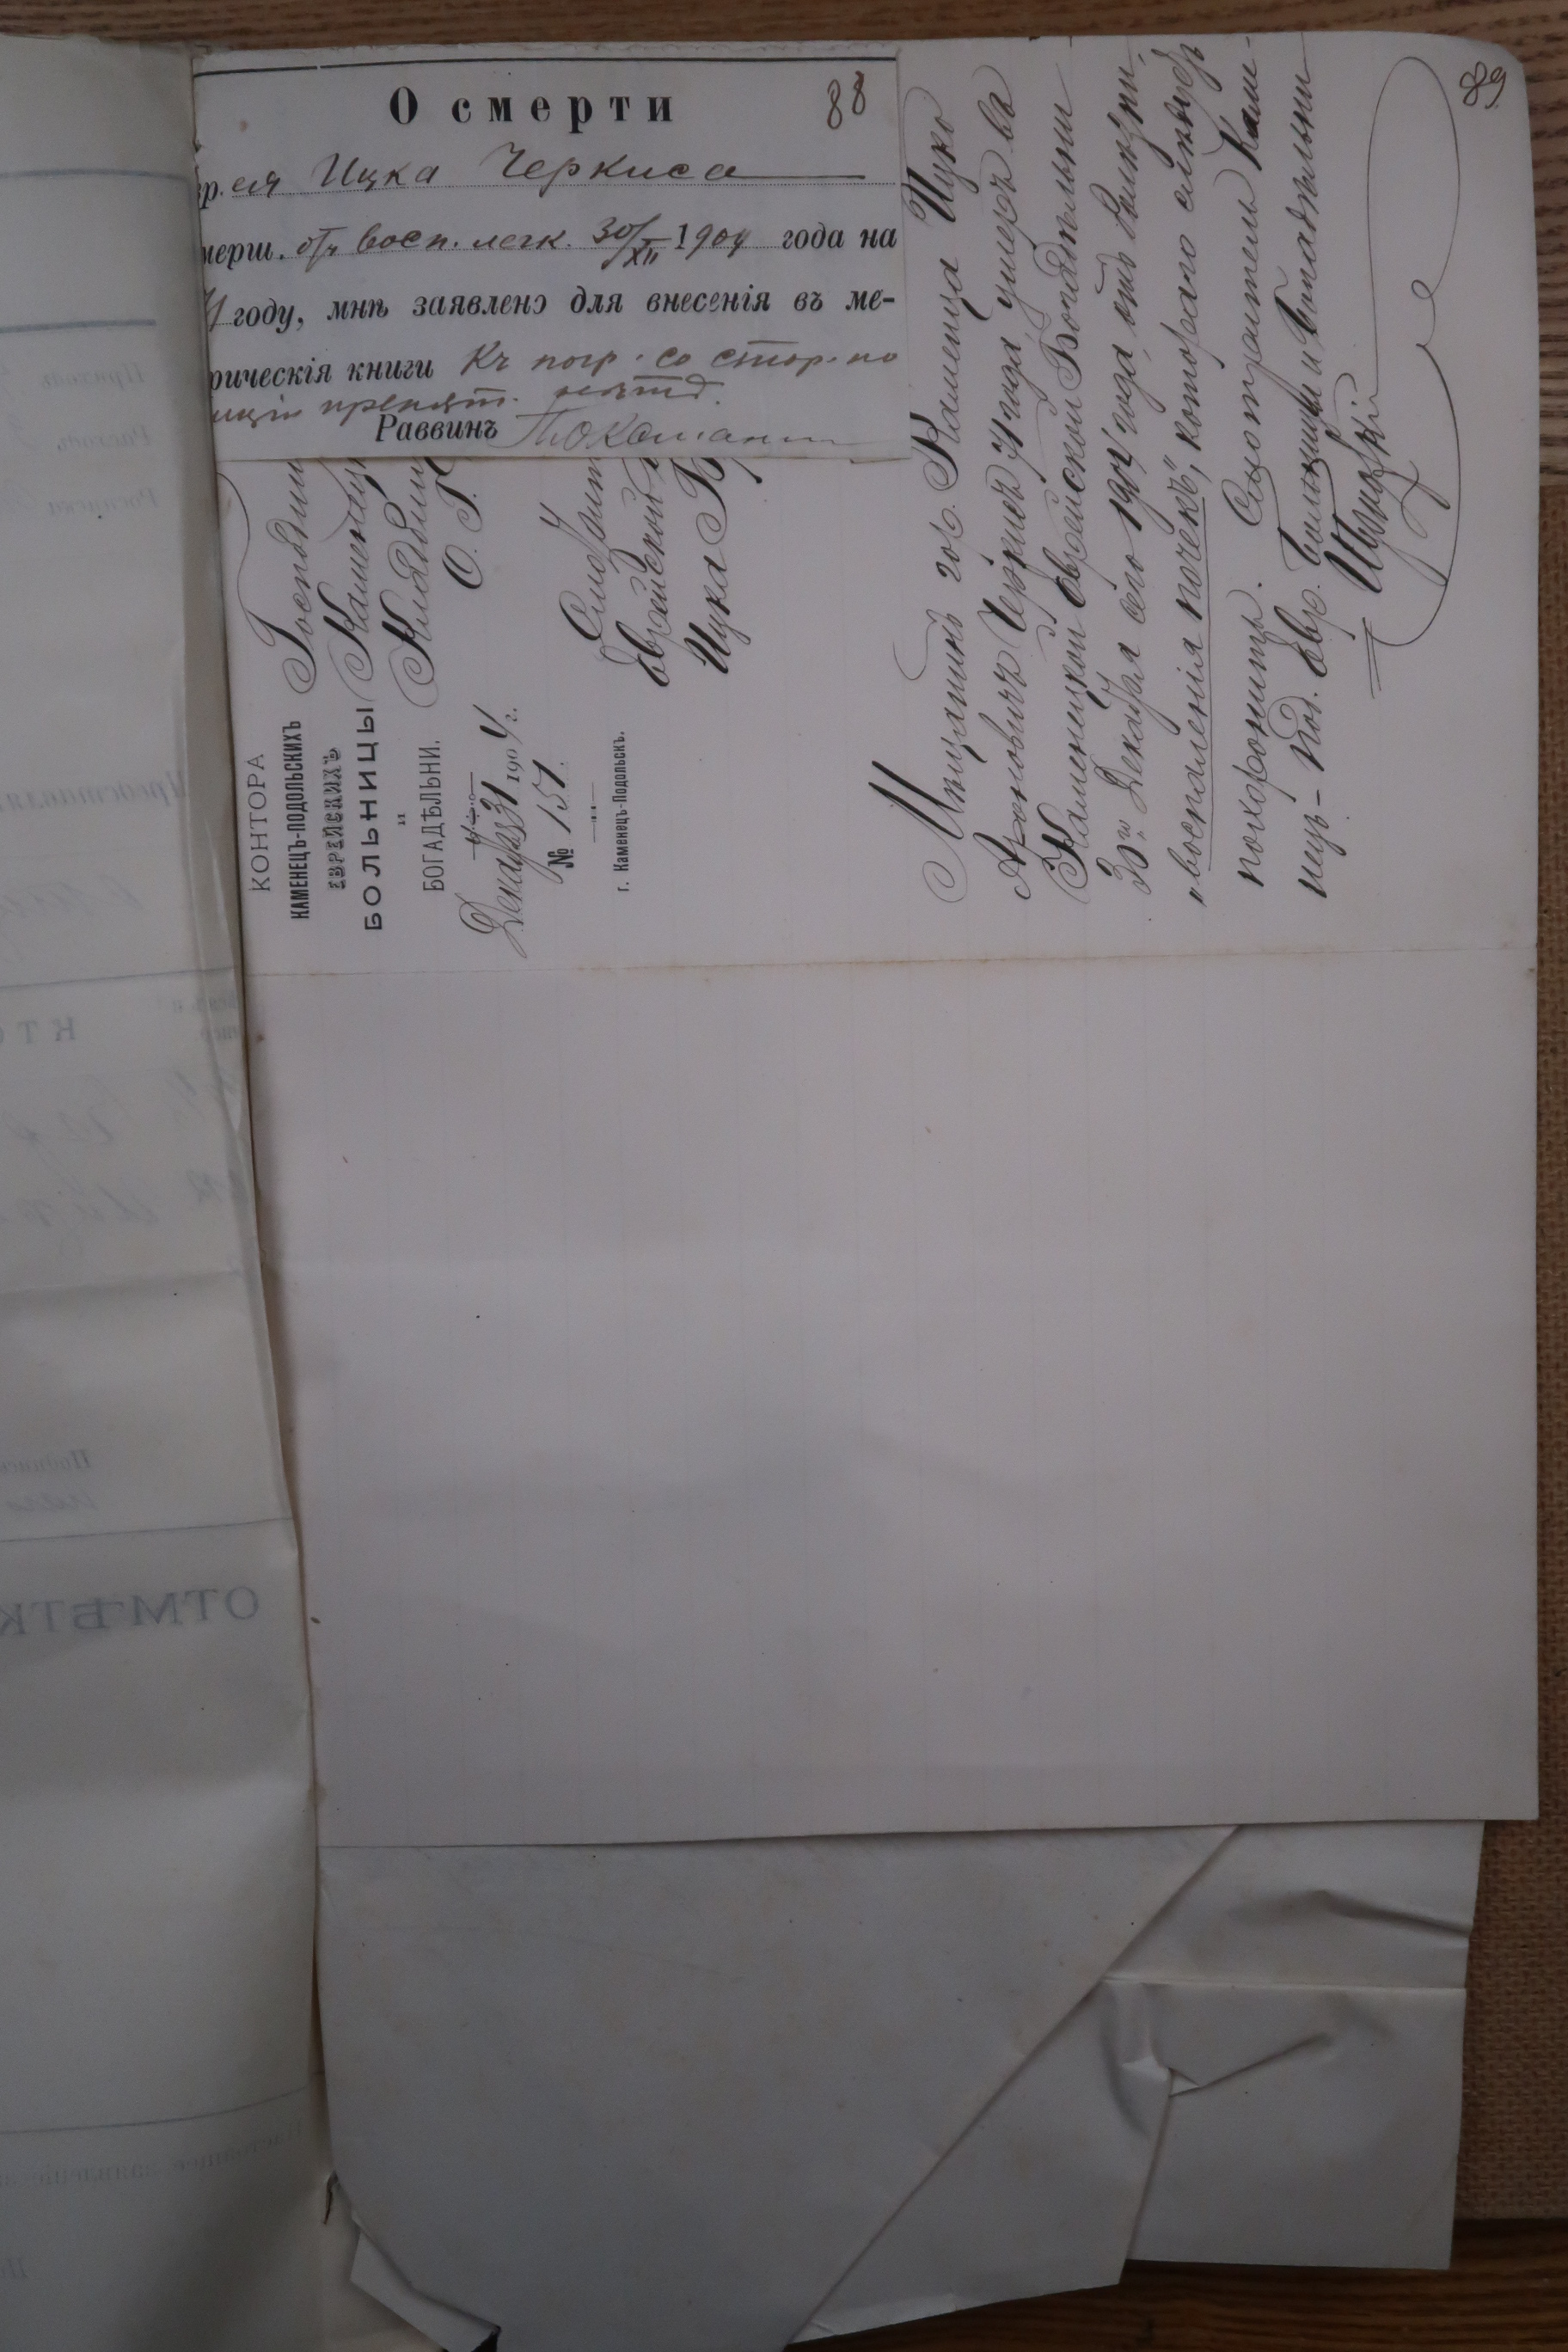 88
О смерти
ея Ицка Черкиса
мерш. отъ восп. легк. 30/XII 1904 года на
году, мнѣ заявлено для внесенія въ ме-
рическія книги Къ погр. со стор. по
иціи препят.
Раввинъ
89
КОНТОРА
КАМЕНЕЦЪ-ПОДОЛЬСКИХЪ
ЕВРЕЙСКИХЪ
БОЛЬНИЦЫ
и
БОГАДѢЛЬНИ.
Декабря 31 1904 г.
№ 157.
г. Каменецъ-Подольскъ.
Господин
Каменец
Кладбищ
О. Г.
Смотрит
Еврейской
Ицка
Мѣщанинъ гор. Каменца Ицко
Ароновичъ Черкисъ 71 года умеръ въ
Каменецкой Еврейской Богадѣльни
30го Декабря сего 1904 года, отъ болѣзни,
„воспаленія почекъ", котораго слѣдуетъ
похоронить. Смотритель Каме-
нец-Под. Евр. Больницы и Богадѣльни